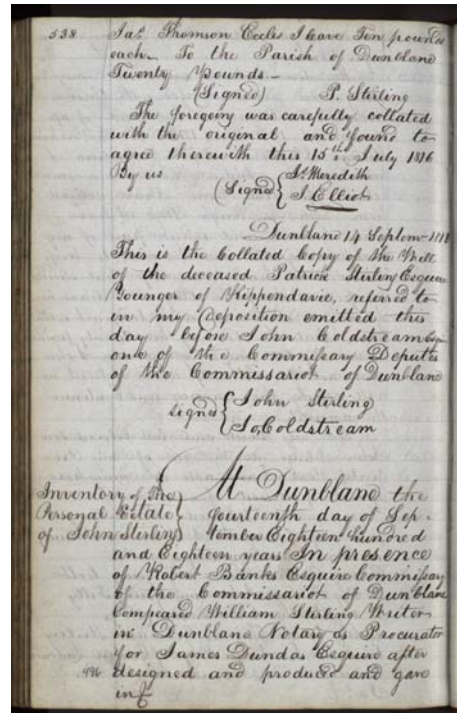 538
Jas. Thomson Eccles I leave Ten pounds
each. To the Parish of Dunblane
Twenty Pounds.—
(Signed) P. Sterling
The foregoing was carefully collated
with the original and found to
agree therewith this 15th July 1816
By us
(Signed { Js. Meredith
J. Elliot
Dunblane 14 Septem-1818
This is the Collated Copy of the Will
of the deceased Patrick Sterling Esquire
Younger of Kippendavie, referred to
in my Deposition emitted this
day before John Coldstream Esqr.
one of the Commissary Deputes
of the Commissariot of Dunblane
signed { John Stirling
Jo, Coldstream
Inventory of the
Personal Estate
of John Sterling
At Dunblane the
fourteenth day of Sep-
tember Eighteen hundred
and Eighteen years In presence
of Robert Banks Esquire Commissary
of the Commissariot of Dunblane
Compeared William Stirling Writer
in Dunblane Notary as Procurator
for James Dundas Esquire after
designed and produced and gave
in